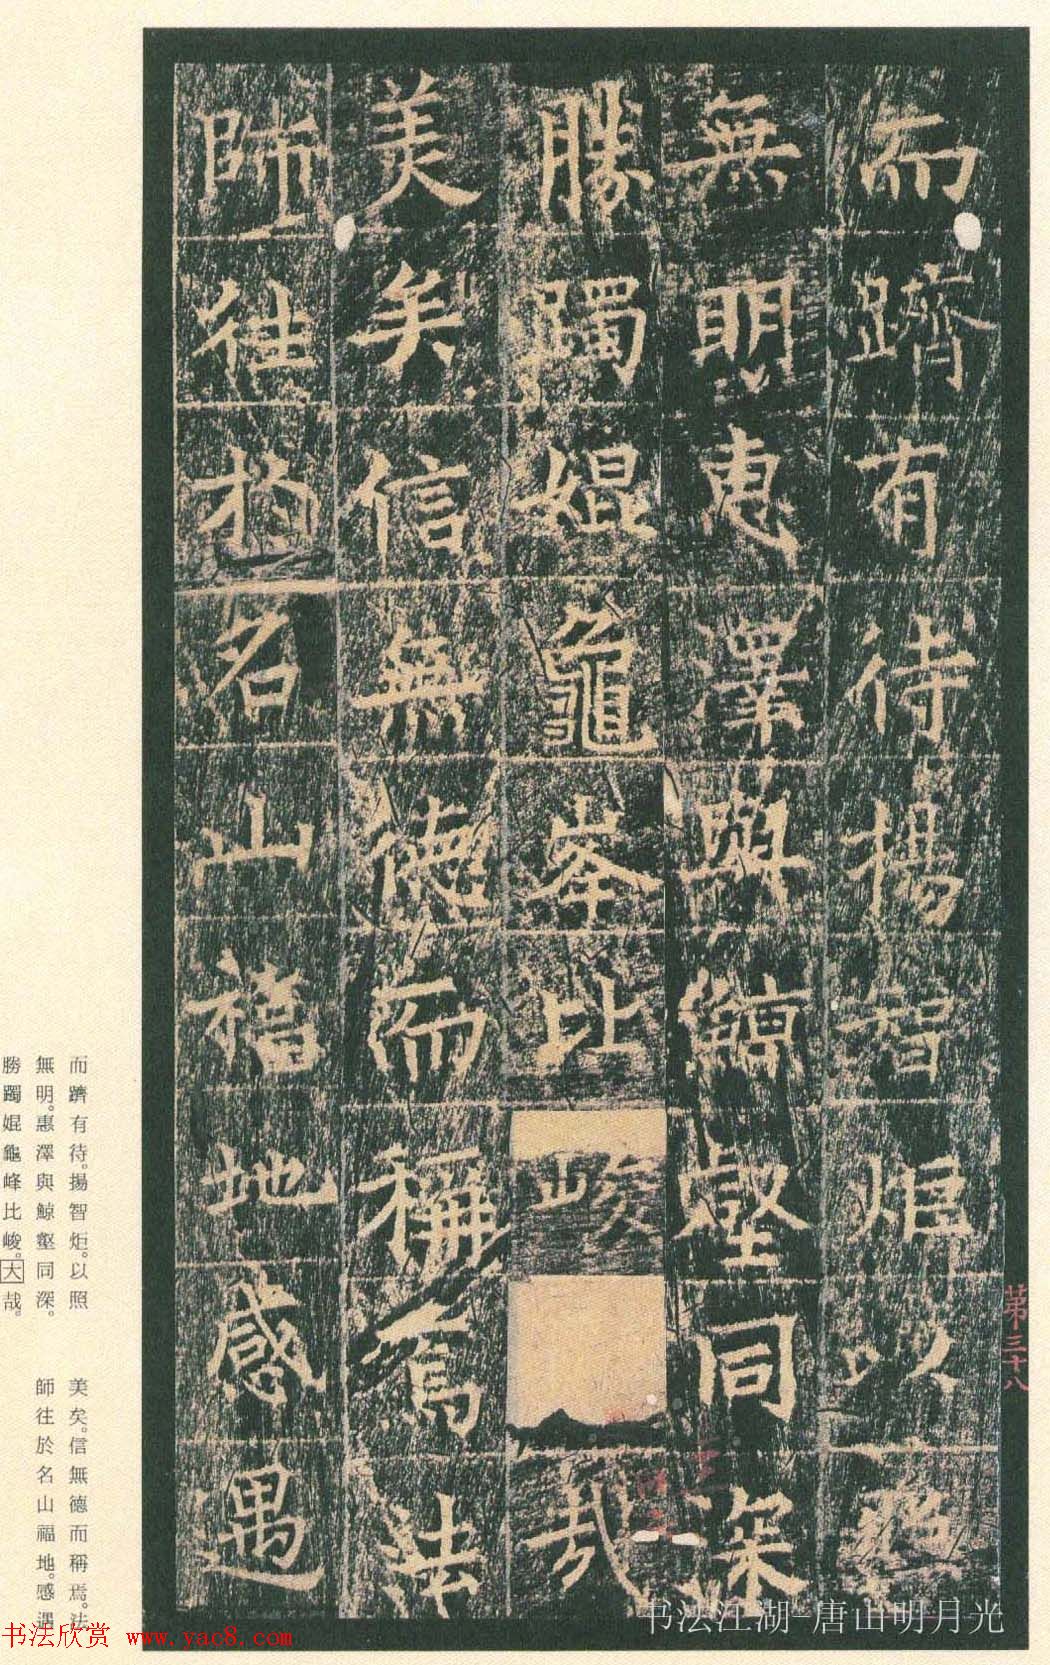 而躋有待揚智炬以照
無明惠澤與鯨壑同深
勝躅婫龜峯比峻哉
美矣信無德而稱焉法
師往於名山福地感遇
第三十八
而躋有待。揚智炬。以照
無明。惠澤與鯨壑同深。
勝躅婫龜峰比峻。大哉。
美矣。信無德而稱焉。法
師往於名山福地。感遇
书法江湖-唐山明月光
书法欣赏 www.yac8.com